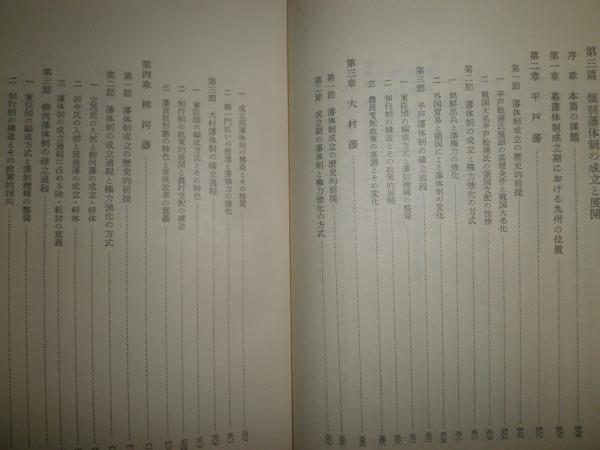 第三篇 個別藩体制の成立と展開
序章 本篇の課題
第一章 幕藩体制成立期における九州の位置
第二章 平戸藩
第一節 藩体制成立の歴史的前提
一 平戸松浦氏擡頭の基礎条件と戦国大名化
二 戦国大名平戸松浦氏の領国支配の性格
第二節 藩体制の成立と権力強化の方式
一 朝鮮出兵と権力の強化
二 外国貿易と鎖国による藩体制の変化
第三節 平戸藩体制の確立過程
一 家臣団の編成方式と藩制機構の整備
二 知行制の構造とその政策的展開
三 農民支配政策の基調とその変化
第三章 大村藩
第一節 藩体制成立の歴史的前提
第二節 成立期の藩体制と権力強化の方式
一 成立期藩体制の構造とその特質
二 御一門払いの断遂と藩権力の強化
第三節 大村藩体制の確立過程
一 家臣団の編成方式とその特色
二 知行制の政策的展開と農村支配の構造
三 藩貢租形態の特色と享保改革の意義
第四章 柳河藩
第一節 藩体制成立の歴史的前提
第二節 藩体制の成立過程と権力強化の方式
一 立花氏の入部と柳河藩の成立・解体
二 田中氏の入部と筑後藩の成立・解体
三 藩体制の成立過程に占める除・転封の意義
第三節 柳河藩体制の確立過程
一 家臣団の編成方式と藩制機構の整備
二 知行制の構造とその政策的指向